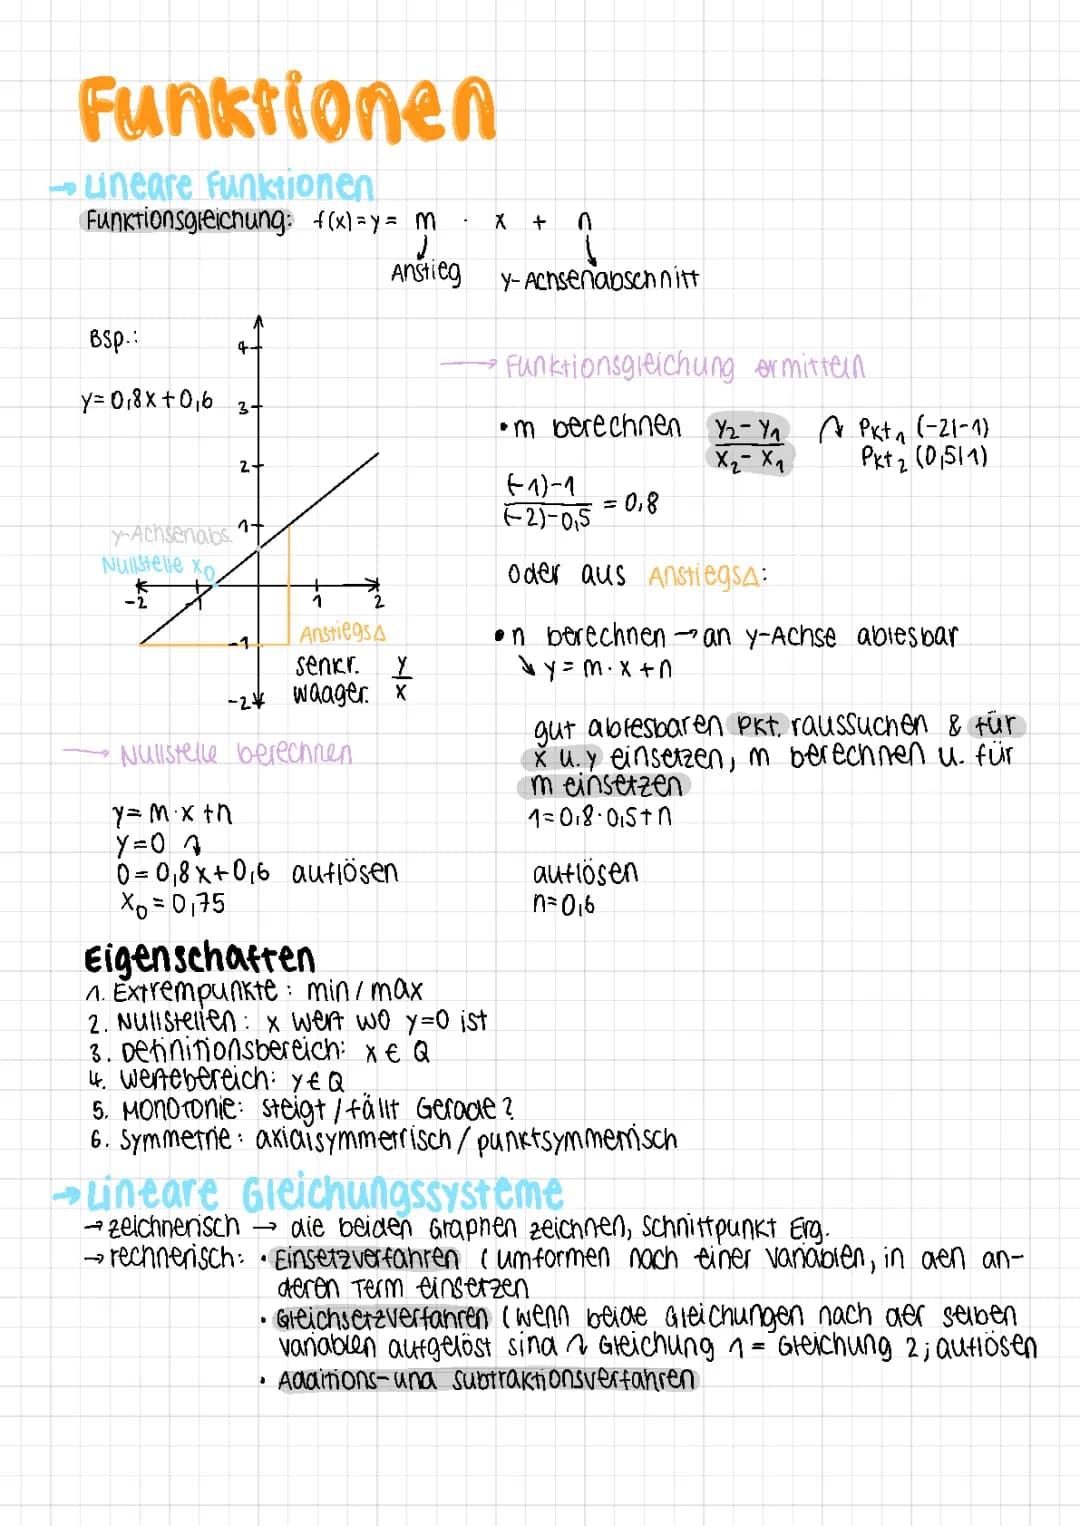 Funktionen
→ Lineare Funktionen
Funktionsgleichung: f(x) = y = m · x + n
Anstieg y-Achsenabschnitt
Bsp.:
y = 0,8x + 0,6
4
3
2
1
y-Achsenabs.
Nullstelle x₀
-2 -1 1 2
-1
-2
Anstiegs△
senkr. y
waager. x
→ Funktionsgleichung ermitteln
• m berechnen
y₂ - y₁
x₂ - x₁
↷ Pkt₁ (-2|-1)
Pkt₂ (0,5|1)
(-1)-1
(-2)-0,5
= 0,8
oder aus Anstiegs△:
• n berechnen → an y-Achse ablesbar
↘ y = m · x + n
gut ablesbaren Pkt. raussuchen & für
x u. y einsetzen, m berechnen u. für
m einsetzen
1 = 0,8 · 0,5 + n
auflösen
n = 0,6
→ Nullstelle berechnen
y = m · x + n
y = 0 ↷
0 = 0,8x + 0,6 auflösen
x₀ = 0,75
Eigenschaften
1. Extrempunkte: min / max
2. Nullstellen: x wert wo y=0 ist
3. Definitionsbereich: x ∈ Q
4. Wertebereich: y ∈ Q
5. Monotonie: steigt / fällt Gerade?
6. Symmetrie: axialsymmetrisch / punktsymmetrisch
→ Lineare Gleichungssysteme
→ zeichnerisch → die beiden Graphen zeichnen, Schnittpunkt Erg.
→ rechnerisch: • Einsetzverfahren (umformen nach einer Variablen, in den an-
deren Term einsetzen
• Gleichsetzverfahren (wenn beide Gleichungen nach der selben
Variablen aufgelöst sind ↷ Gleichung 1 = Gleichung 2; auflösen
• Additions- und Subtraktionsverfahren